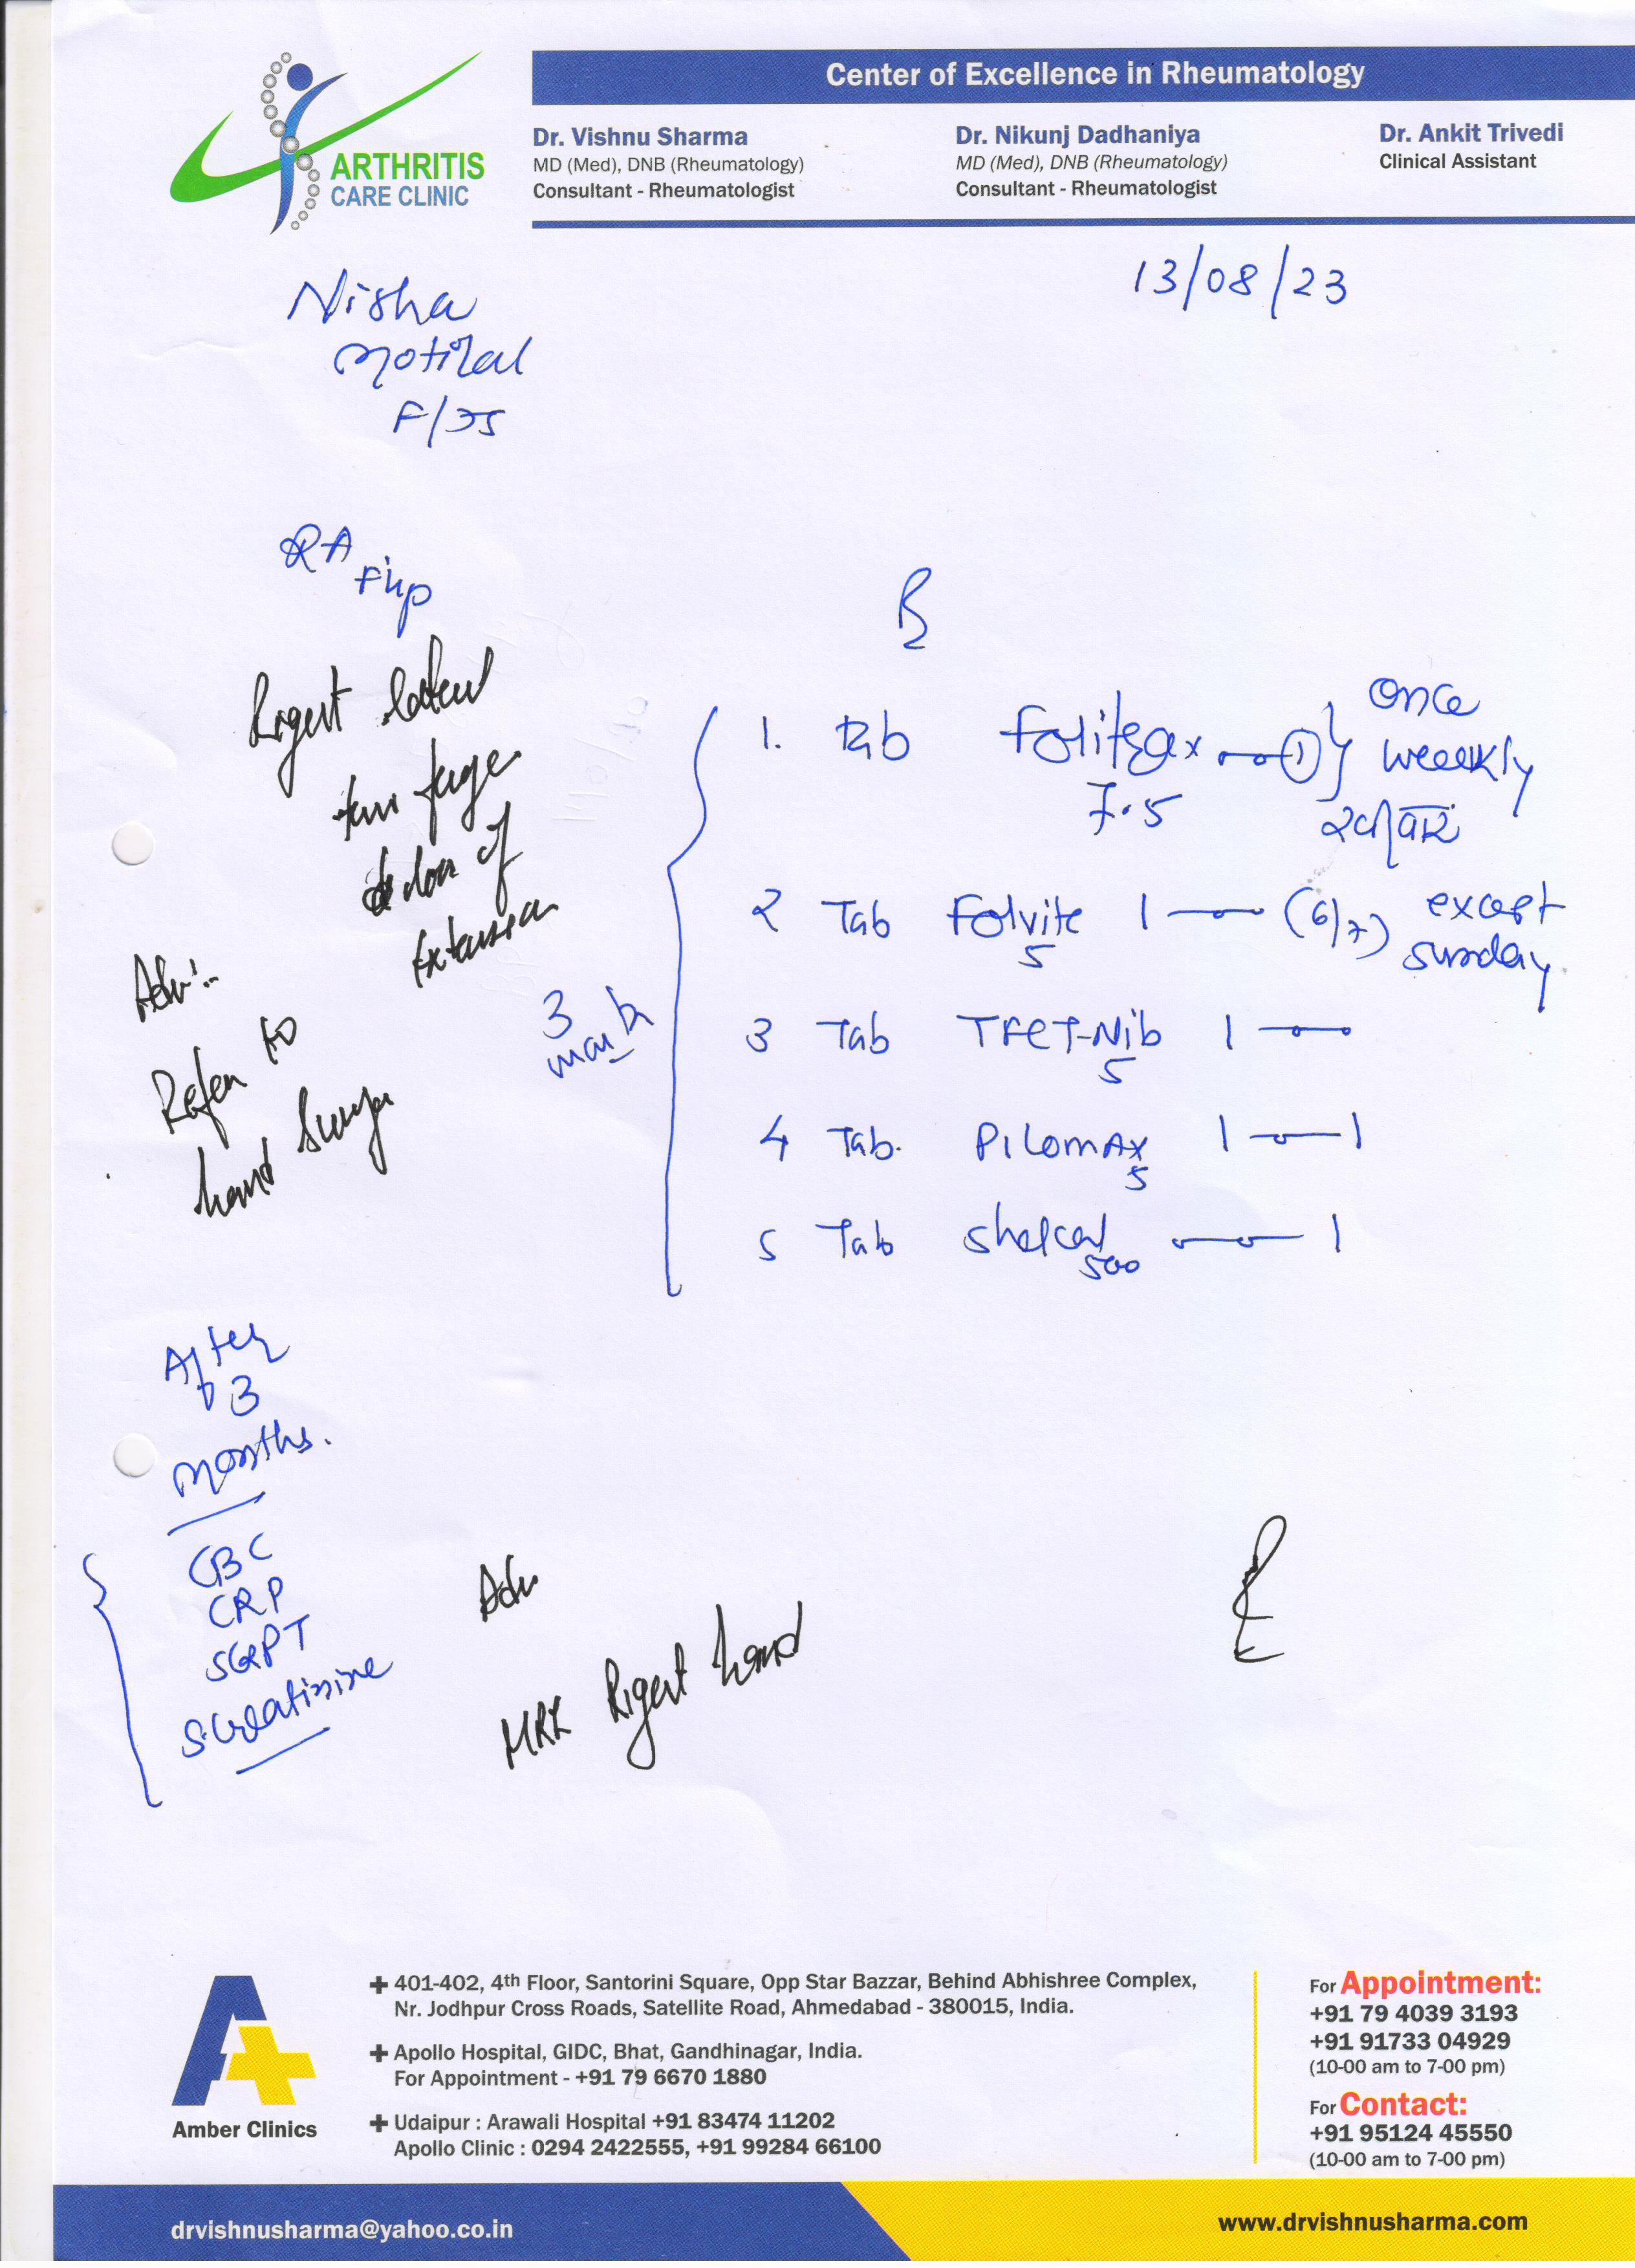 Center of Excellence in Rheumatology
ARTHRITIS
CARE CLINIC
Dr. Vishnu Sharma
MD (Med), DNB (Rheumatology)
Consultant - Rheumatologist
Dr. Nikunj Dadhaniya
MD (Med), DNB (Rheumatology)
Consultant - Rheumatologist
Dr. Ankit Trivedi
Clinical Assistant
13/08/23
Nisha
Motilal
F/35
RA
Right
of
Extension
Adv:-
Refer to
hand
3
1. Tab Folitrax 0-0-1 } once
7.5 weeekly
રવિવાર
2 Tab Folvite 1-0-0 (6/7) except
5 sunday
3 Tab TFCT-Nib 1-0-0
5
4 Tab. PILOMAX 1-0-1
5
5 Tab Shelcal 0-0-1
500
After
3
months.
CBC
CRP
SGPT
S.creatinine
Adv
MRI Right hand
Amber Clinics
401-402, 4th Floor, Santorini Square, Opp Star Bazzar, Behind Abhishree Complex,
Nr. Jodhpur Cross Roads, Satellite Road, Ahmedabad - 380015, India.
Apollo Hospital, GIDC, Bhat, Gandhinagar, India.
For Appointment - +91 79 6670 1880
Udaipur : Arawali Hospital +91 83474 11202
Apollo Clinic : 0294 2422555, +91 99284 66100
For Appointment:
+91 79 4039 3193
+91 91733 04929
(10-00 am to 7-00 pm)
For Contact:
+91 95124 45550
(10-00 am to 7-00 pm)
drvishnusharma@yahoo.co.in
www.drvishnusharma.com